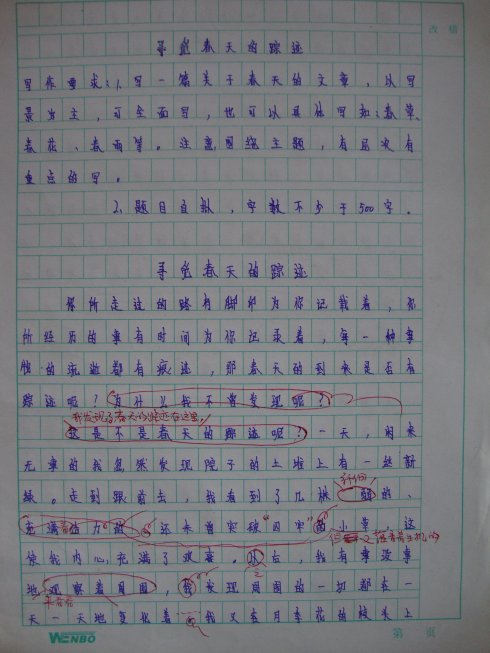 改错
寻觅春天的踪迹
写作要求:1、写一篇关于春天的文章,以写
景为主,可全面写,也可以具体写如:春草、
春花、春雨等。注意围绕主题,有层次有
重点的写。
2、题目自拟,字数不少于500字。
寻觅春天的踪迹
你所走过的路有脚印为你记载着,你
所经历的事有时间为你记录着,每一种事
物的流逝都有痕迹,那春天的到来是否有
踪迹呢?为什么我不曾发现呢?
我发现了春天的踪迹在这里
这是不是春天的踪迹呢?一天,闲来
无事的我忽然发现院子的土堆上有一丝新
绿。走到跟前去,我看到了几棵 弱的、
充满着活力的 还未曾突破“囚牢”的小草,这
使我内心充满了欢喜。 后,我有事没事
地 观察着周围,我发现周围的一切都在一
天一天地变化着……我又在月季花的枝头上
WENBO
第 页